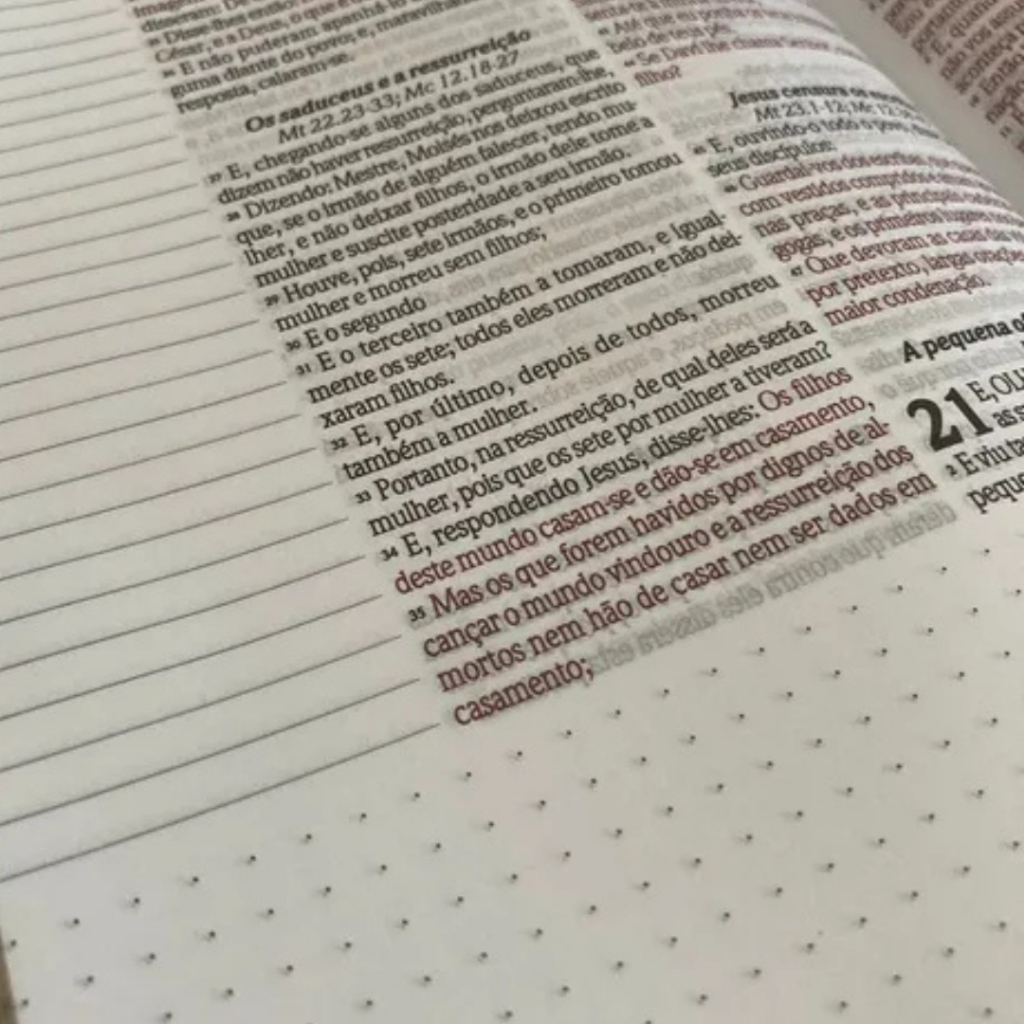 imagem
disseram: De
Disse-lhes então:
César, e a Deus, o que é
26 E não puderam apanhá-lo
guma diante do povo; e, maravilhados
resposta, calaram-se.
Os saduceus e a ressurreição
Mt 22.23-33; Mc 12.18-27
27 E, chegando-se alguns dos saduceus, que
dizem não haver ressurreição, perguntaram-lhe,
28 Dizendo: Mestre, Moisés nos deixou escrito
que, se o irmão de alguém falecer, tendo mu-
lher, e não deixar filhos, o irmão dele tome a
mulher e suscite posteridade a seu irmão.
29 Houve, pois, sete irmãos, e o primeiro tomou
mulher e morreu sem filhos;
30 E o segundo
31 E o terceiro também a tomaram, e igual-
mente os sete; todos eles morreram e não dei-
xaram filhos.
32 E, por último, depois de todos, morreu
também a mulher.
33 Portanto, na ressurreição, de qual deles será a
mulher, pois que os sete por mulher a tiveram?
34 E, respondendo Jesus, disse-lhes: Os filhos
deste mundo casam-se e dão-se em casamento,
35 Mas os que forem havidos por dignos de al-
cançar o mundo vindouro e a ressurreição dos
mortos nem hão de casar nem ser dados em
casamento;
senta-te à minha
Até que eu ponha
belo de teus pés.
Se Davi lhe chama
filho?
Jesus censura os
Mt 23.1-12; Mc 12
45 E, ouvindo-o todo o povo,
seus discípulos:
46 Guardai-vos dos escribas, que
com vestidos compridos
nas praças, e as principais
gogas, e os primeiros lugares
47 Que devoram as casas das
por pretexto, largas orações
maior condenação.
A pequena of
21 E, OLH
as
2 E viu ta
peque